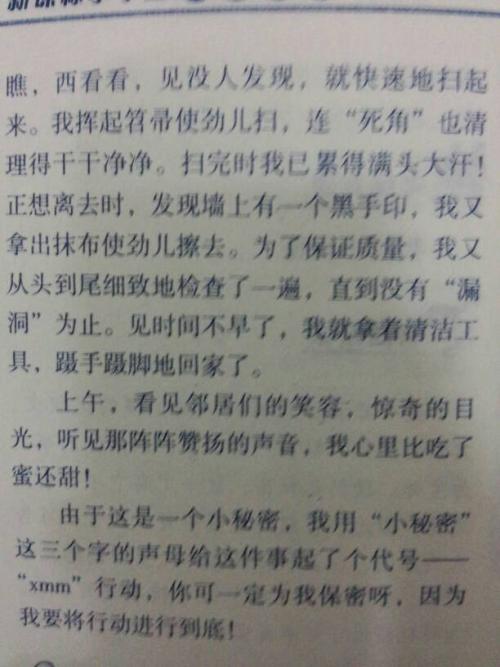 瞧，西看看，见没人发现，就快速地扫起
来。我挥起笤帚使劲儿扫，连“死角”也清
理得干干净净。扫完时我已累得满头大汗！
正想离去时，发现墙上有一个黑手印，我又
拿出抹布使劲儿擦去。为了保证质量，我又
从头到尾细致地检查了一遍，直到没有“漏
洞”为止。见时间不早了，我就拿着清洁工
具，蹑手蹑脚地回家了。
上午，看见邻居们的笑容，惊奇的目
光，听见那阵阵赞扬的声音，我心里比吃了
蜜还甜！
由于这是一个小秘密，我用“小秘密”
这三个字的声母给这件事起了个代号——
“xmm”行动，你可一定为我保密呀，因为
我要将行动进行到底！